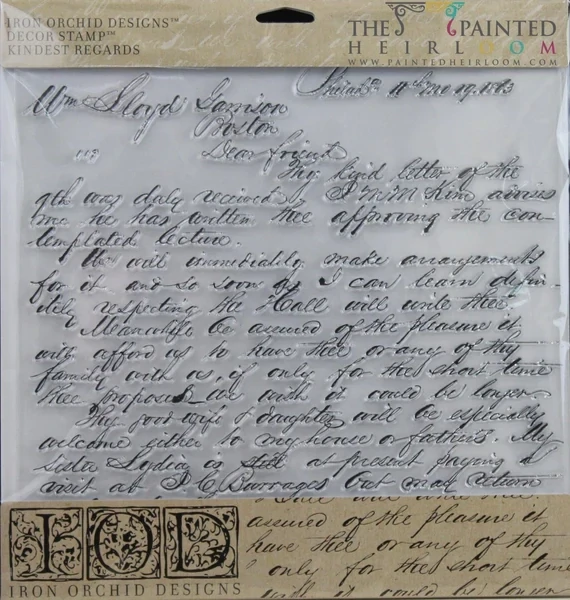 IRON ORCHID DESIGNS™
DECOR STAMP™
KINDEST REGARDS
THE PAINTED
HEIRLOOM
WWW.PAINTEDHEIRLOOM.COM
Philad. 11th mo 19. 1863
Wm Lloyd Garrison
Boston
Dear friend
Thy kind letter of the
9th was duly received. J M M Kim advises
me he has written thee approving the con-
templated lecture.
We will immediately make arrangements
for it and so soon as I can learn defin-
itely respecting the Hall will write thee.
Meanwhile be assured of the pleasure it
will afford us to have thee or any of thy
family with us, if only for the short time
thee proposes we wish it could be longer
Thy good wife & daughter will be especially
welcome either to my house or father's. My
sister Lydia is still at present paying a
visit at J. C. Burrages but may return
IOD
IRON ORCHID DESIGNS
Hall will write thee.
assured of the pleasure it
have thee or any of thy
only for the short time
it could be longer